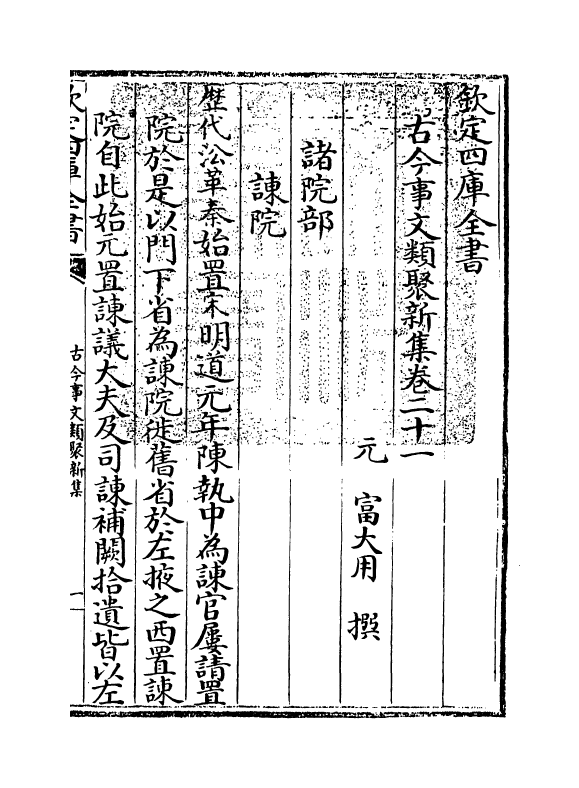 欽定四庫全書
古今事文類聚新集卷二十一
元 富大用 撰
諸院部
諫院
歷代㳂革秦始置宋明道元年陳執中為諫官屢請置
院於是以門下省為諫院徙舊省於左掖之西置諫
院自此始元置諫議大夫及司諫補闕拾遺皆以左
欽定四庫全書
古今事文類聚新集
一